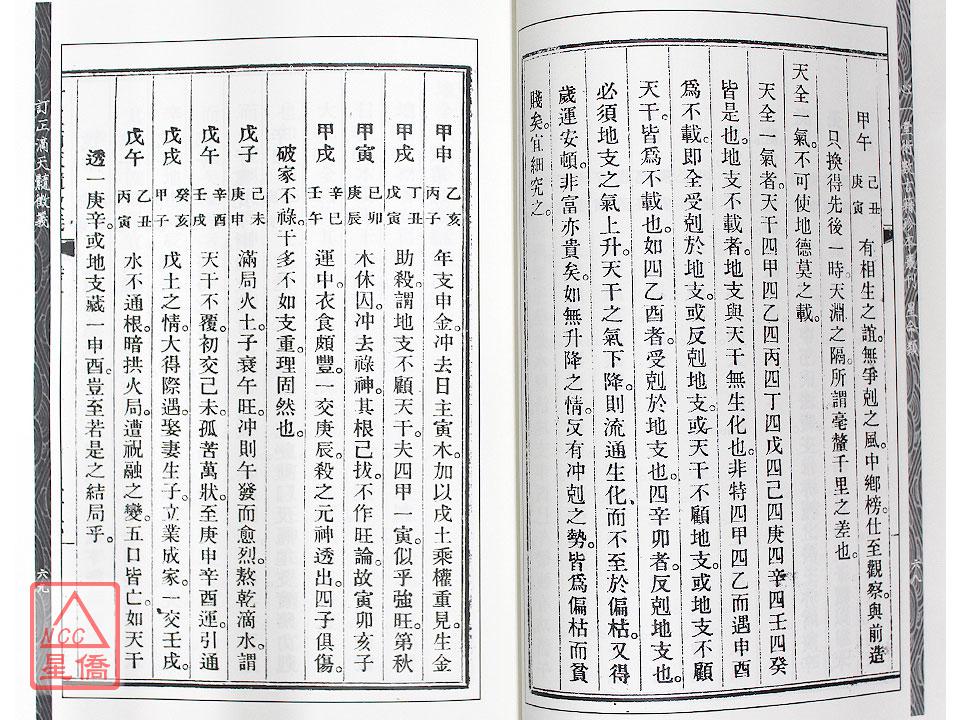 甲午 己丑 庚寅 有相生之誼。無爭剋之風。中鄉榜。仕至觀察。與前造
只換得先後一時。天淵之隔。所謂毫釐千里之差也。
天全一氣。不可使地德莫之載。
天全一氣者。天干四甲四乙四丙四丁四戊四己四庚四辛四壬四癸
皆是也。地支不載者。地支與天干無生化也。非特四甲四乙而遇申酉
為不載。即全受剋於地支。或反剋地支。或天干不顧地支。或地支不顧
天干。皆為不載也。如四乙酉者。受剋於地支也。四辛卯者。反剋地支也。
必須地支之氣上升。天干之氣下降。則流通生化。而不至於偏枯。又得
歲運安頓。非富亦貴矣。如無升降之情。反有冲剋之勢。皆為偏枯而貧
賤矣。宜細究之。
甲申 乙亥 丙子 年支申金。冲去日主寅木。加以戌土乘權重見。生金
甲戌 丁丑 戊寅 助殺。謂地支不顧天干。夫四甲一寅。似乎強旺。第秋
甲寅 己卯 庚辰 木休囚。冲去祿神。其根已拔。不作旺論。故寅卯亥子
甲戌 辛巳 壬午 運中。衣食頗豐。一交庚辰。殺之元神透出。四子俱傷。
破家不祿。干多不如支重。理固然也。
戊子 己未 庚申 滿局火土。子衰午旺。冲則午發而愈烈。熬乾滴水。謂
戊午 辛酉 壬戌 天干不覆。初交己未。孤苦萬狀。至庚申辛酉運。引通
戊戌 癸亥 甲子 戊土之情。大得際遇。娶妻生子。立業成家。一交壬戌。
戊午 乙丑 丙寅 水不通根。暗拱火局。遭祝融之變。五口皆亡。如天干
透一庚辛。或地支藏一申酉。豈至若是之結局乎。
訂正滴天髓徵義
六九
六八
NCC
星僑